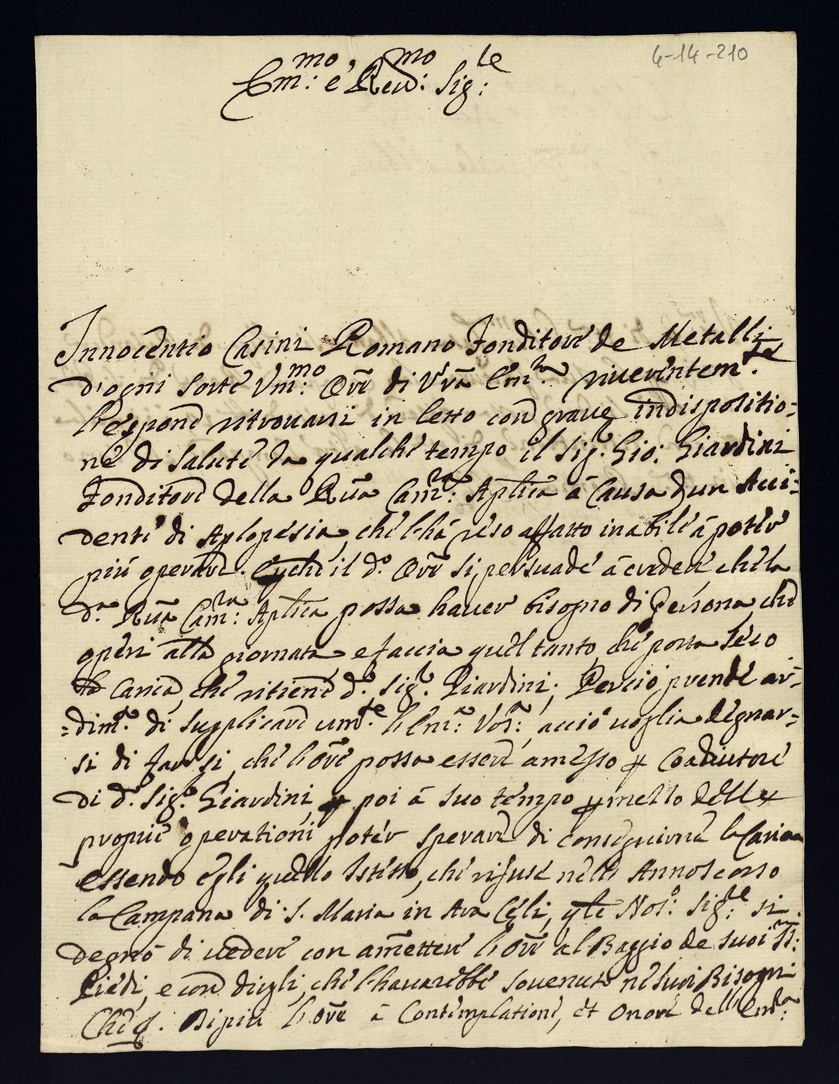 4-14-210
Em:mo e Reu:mo Sig:re
Innocentio Casini Romano Fonditore de Metalli
d'ogni sorte Vm:mo Ore di Vra Em:za riuerintem:te
l'espone ritrouarsi in letto con graue indispositio=
ne di salute da qualche tempo il Sig: Gio: Giardini
Fonditore della Rua Cam:ra Aplica à Causa d'un Acci=
dente di Aplopesia che l'hà reso affatto inabile à poter
più operare. E perche il do Ore si persuade à credere che la
da Rua Cam:ra Aplica possa hauer bisogno di Persona, che
operi alla giornata e faccia quel tanto che porta seco
la Carica che ritiene do Sig:r Giardini; Perciò prende ar=
=dim:to di supplicare um:te l'Em:za Vos:a, acciò uoglia degnar=
si di far si, che l'Ore possa essere amesso p Coadiutore
di do Sig:r Giardini e poi à suo tempo p mezzo delle
proprie operationi poter sperare di conseguirne la Carica
essendo egli quello Istesso, che rifuse nell' Anno scorso
la Campana di S. Maria in Ara Celi, e Nos:o Sig:re si
degnò di uedere con amettere l'Ore al Baggio de suoi SS:mi
Piedi, e con dirgli, che l'hauarebbe souenuto ne suoi Bisogni
Che p. Di più l'Ore à Contemplatione, et Onore dell' Em:za